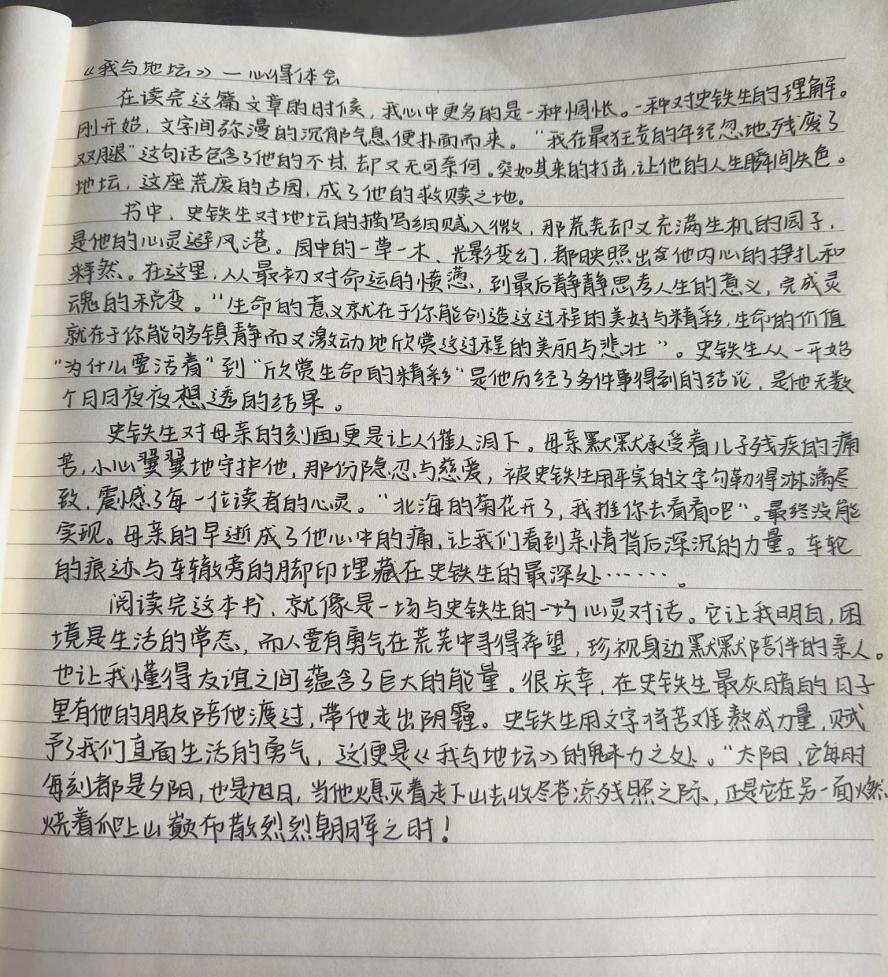 《我与地坛》—心得体会
在读完这篇文章的时候，我心中更多的是一种惆怅。一种对史铁生的理解。
刚开始，文字间弥漫的沉郁气息便扑面而来。“我在最狂妄的年纪忽地残废了
双腿”这句话包含了他的不甘却又无可奈何。突如其来的打击，让他的人生瞬间失色。
地坛，这座荒废的古园，成了他的救赎之地。
书中，史铁生对地坛的描写细腻入微，那荒芜却又充满生机的园子，
是他的心灵避风港。园中的一草一木、光影变幻，都映照出他内心的挣扎和
释然。在这里，从最初对命运的愤懑，到最后静静思考人生的意义，完成灵
魂的蜕变。“生命的意义就在于你能创造这过程的美好与精彩，生命的价值
就在于你能够镇静而又激动地欣赏这过程的美丽与悲壮”。史铁生从一开始
“为什么要活着”到“欣赏生命的精彩”是他历经了多件事得到的结论，是他无数
个日日夜夜想透的结果。
史铁生对母亲的刻画更是让人催人泪下。母亲默默承受着儿子残疾的痛
苦，小心翼翼地守护他，那份隐忍与慈爱，被史铁生用平实的文字勾勒得淋漓尽
致，震撼了每一位读者的心灵。“北海的菊花开了，我推你去看看吧”。最终没能
实现。母亲的早逝成了他心中的痛，让我们看到亲情背后深沉的力量。车轮
的痕迹与车辙旁的脚印埋藏在史铁生的最深处……。
阅读完这本书，就像是一场与史铁生的一场心灵对话。它让我明白，困
境是生活的常态，而人要有勇气在荒芜中寻得希望，珍视身边默默陪伴的亲人。
也让我懂得友谊之间蕴含了巨大的能量。很庆幸，在史铁生最灰暗的日子
里有他的朋友陪他渡过，带他走出阴霾。史铁生用文字将苦难熬成力量，赋
予了我们直面生活的勇气，这便是《我与地坛》的魅力之处。“太阳，它每时
每刻都是夕阳，也是旭日，当他熄灭着走下山去收尽苍凉残照之际，正是它在另一面燃
烧着爬上山巅布散烈烈朝晖之时！